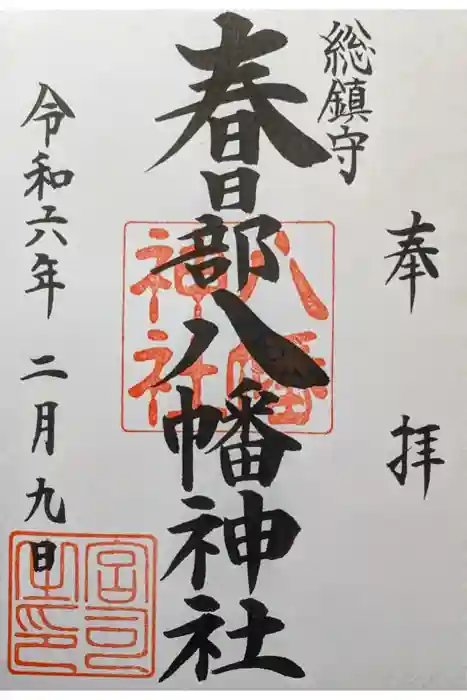 奉拝
総鎮守
春日部八幡神社
八幡神社
令和六年二月九日
宮司之印